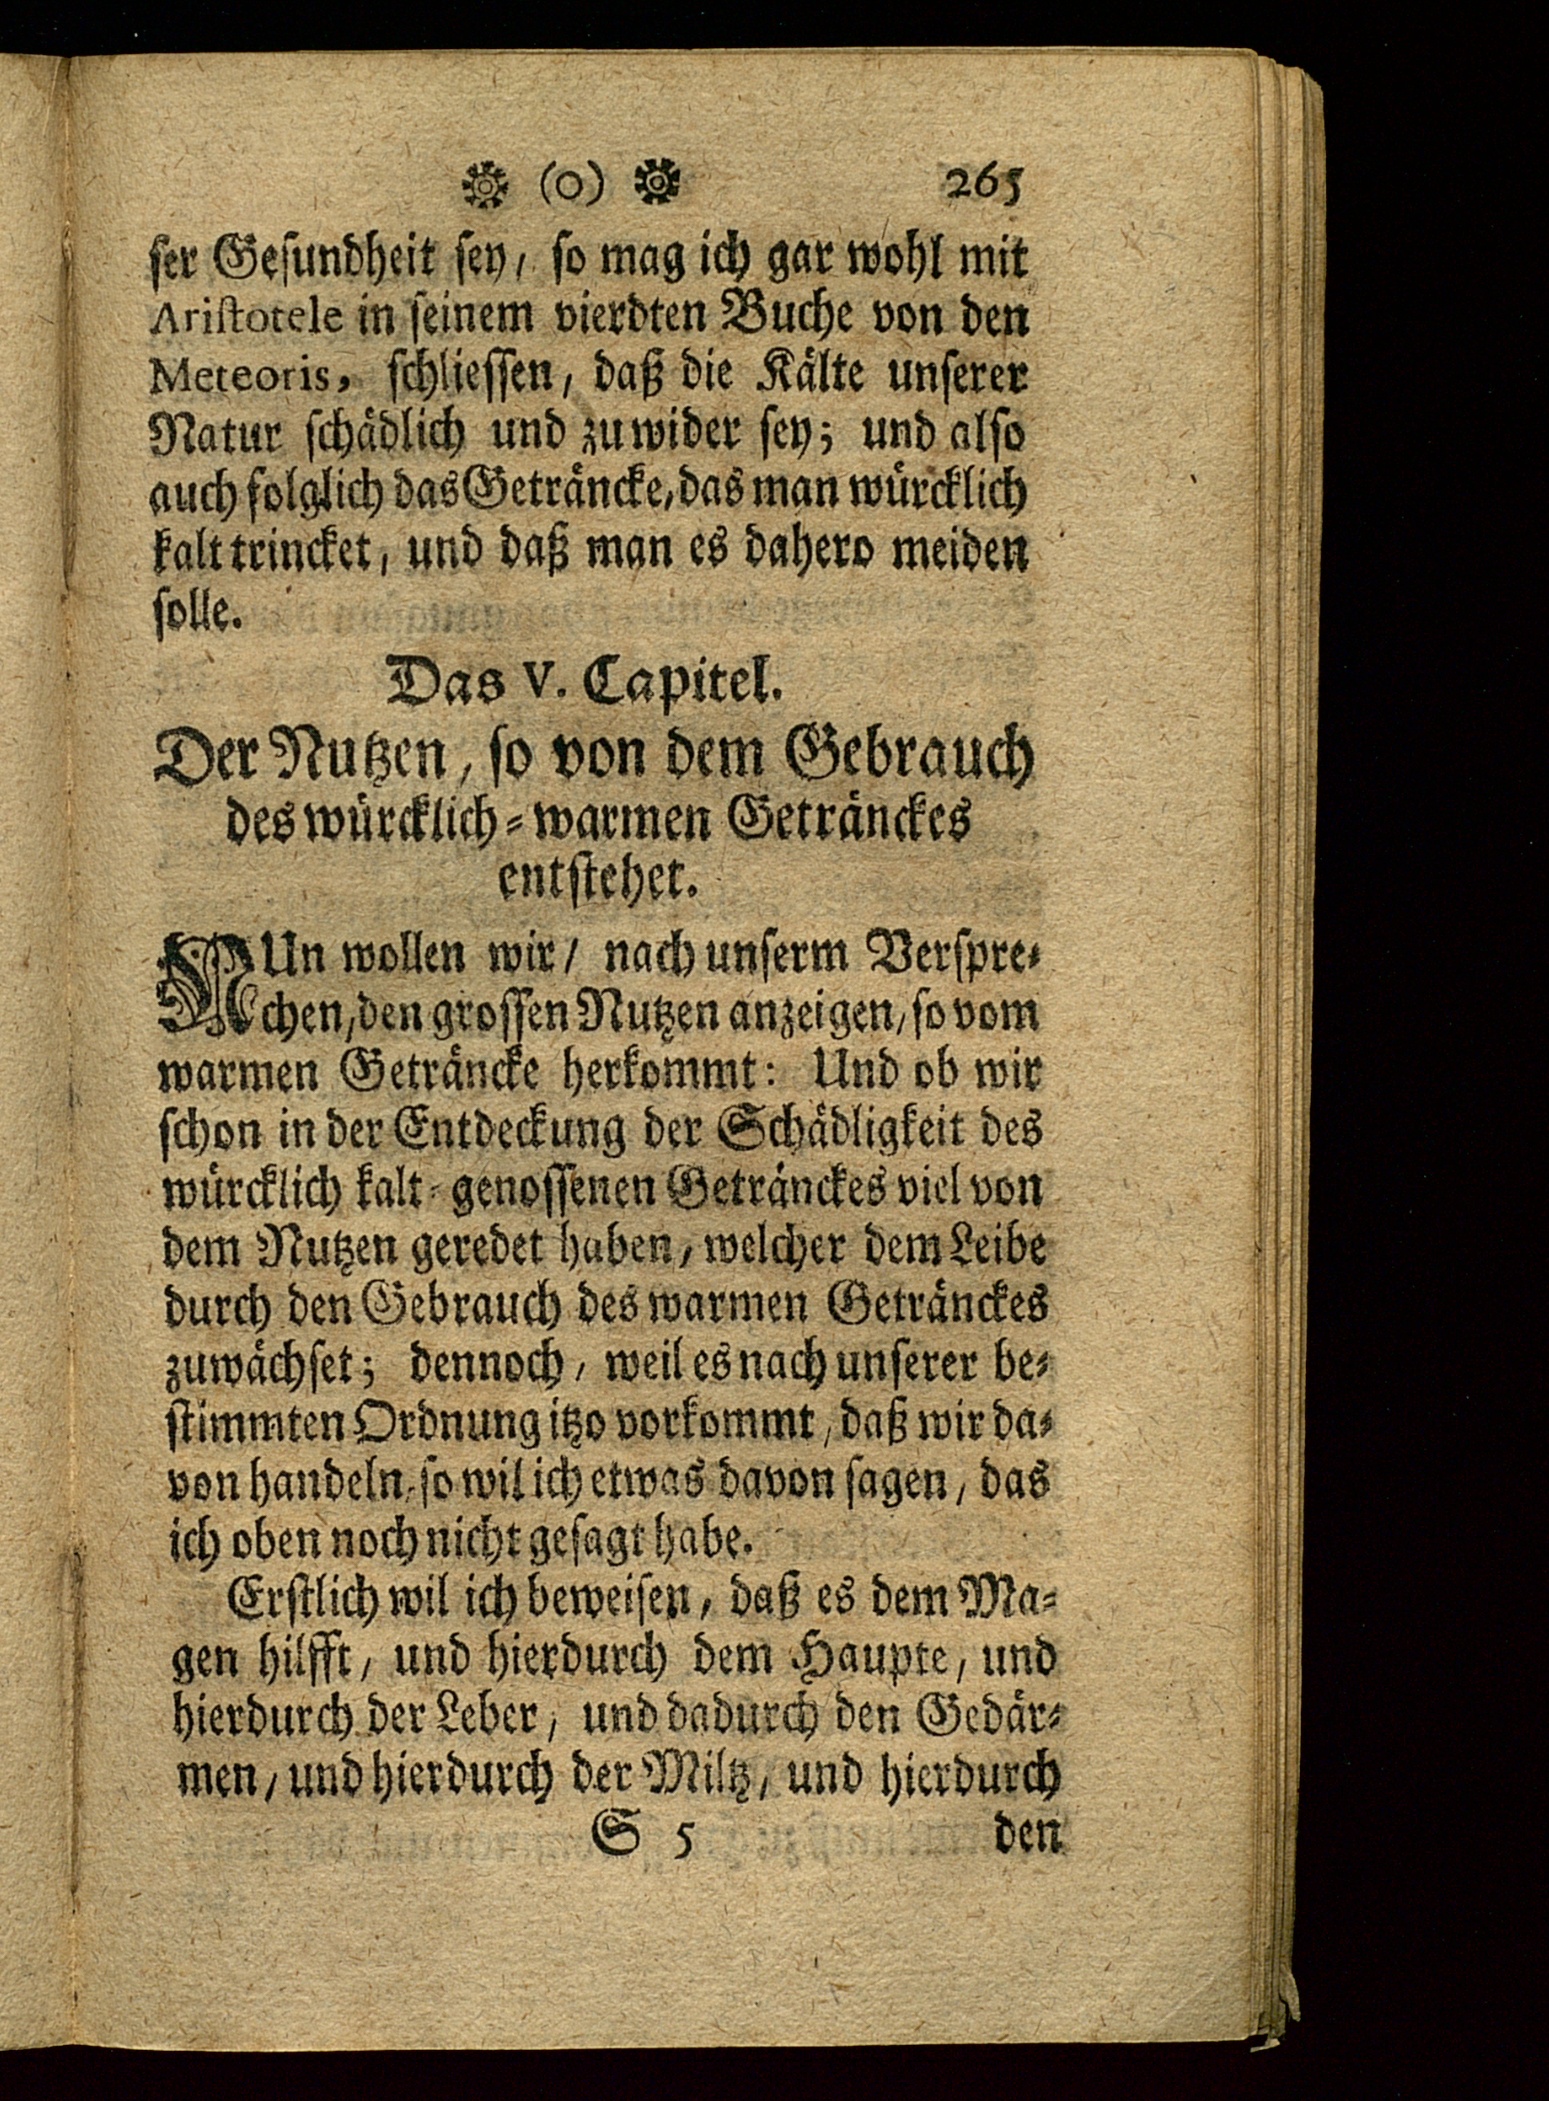 (o) 265
ser Gesundheit sey, so mag ich gar wohl mit
Aristotele in seinem vierdten Buche von den
Meteoris, schliessen, daß die Kälte unserer
Natur schädlich und zuwider sey; und also
auch folglich das Geträncke, das man würcklich
kalt trincket, und daß man es dahero meiden
solle.
Das V. Capitel.
Der Nutzen, so von dem Gebrauch
des würcklich-warmen Getränckes
entstehet.
NUn wollen wir / nach unserm Verspre-
chen, den grossen Nutzen anzeigen, so vom
warmen Geträncke herkommt: Und ob wir
schon in der Entdeckung der Schädligkeit des
würcklich kalt-genossenen Getränckes viel von
dem Nutzen geredet haben, welcher dem Leibe
durch den Gebrauch des warmen Getränckes
zuwächset; dennoch, weil es nach unserer be-
stimmten Ordnung itzo vorkommt, daß wir da-
von handeln, so wil ich etwas davon sagen, das
ich oben noch nicht gesagt habe.
Erstlich wil ich beweisen, daß es dem Ma-
gen hilfft, und hierdurch dem Haupte, und
hierdurch der Leber, und dadurch den Gedär-
men, und hierdurch der Miltz, und hierdurch
S 5 den